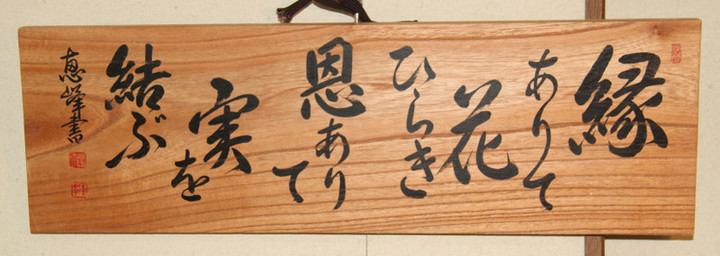 縁
ありて
花
ひらき
恩あり
て
実を
結ぶ
恵峰書